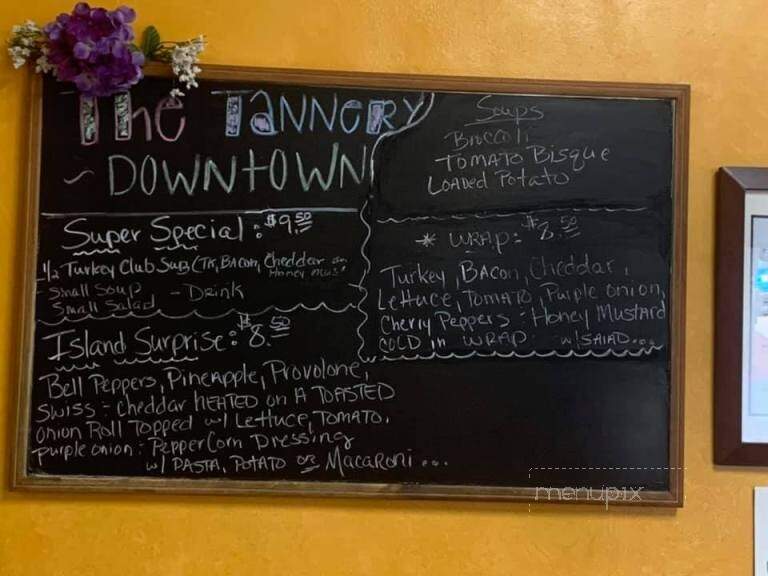 The Tannery
~ Downtown
Super Special: $9.50
1/2 Turkey Club Sub (Tky, Bacon, Cheddar
Honey Mus.
- Small Soup
Small Salad - Drink
Island Surprise: $8.50
Bell Peppers, Pineapple, Provolone,
Swiss - cheddar HEATED on A TOASTED
onion Roll Topped w/ Lettuce, TOMATO,
purple onion: PepperCorn Dressing
w/ PASTA, POTATO or Macaroni...
Soups
Broccoli
TOMATO Bisque
Loaded Potato
* WRAP: $8.50
Turkey, Bacon, Cheddar,
Lettuce, TOMATO, Purple onion,
Cherry Peppers - Honey Mustard
COLD in WRAP w/ SALAD...
menupix